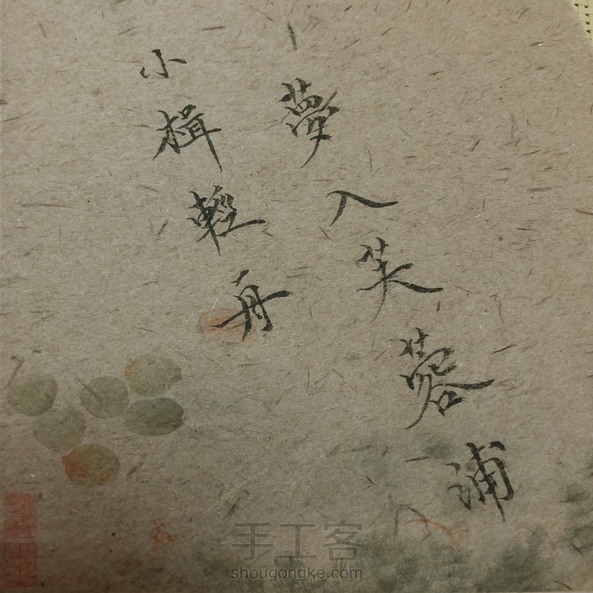 小楫輕舟
夢入芙蓉浦
手工客
shougongke.com